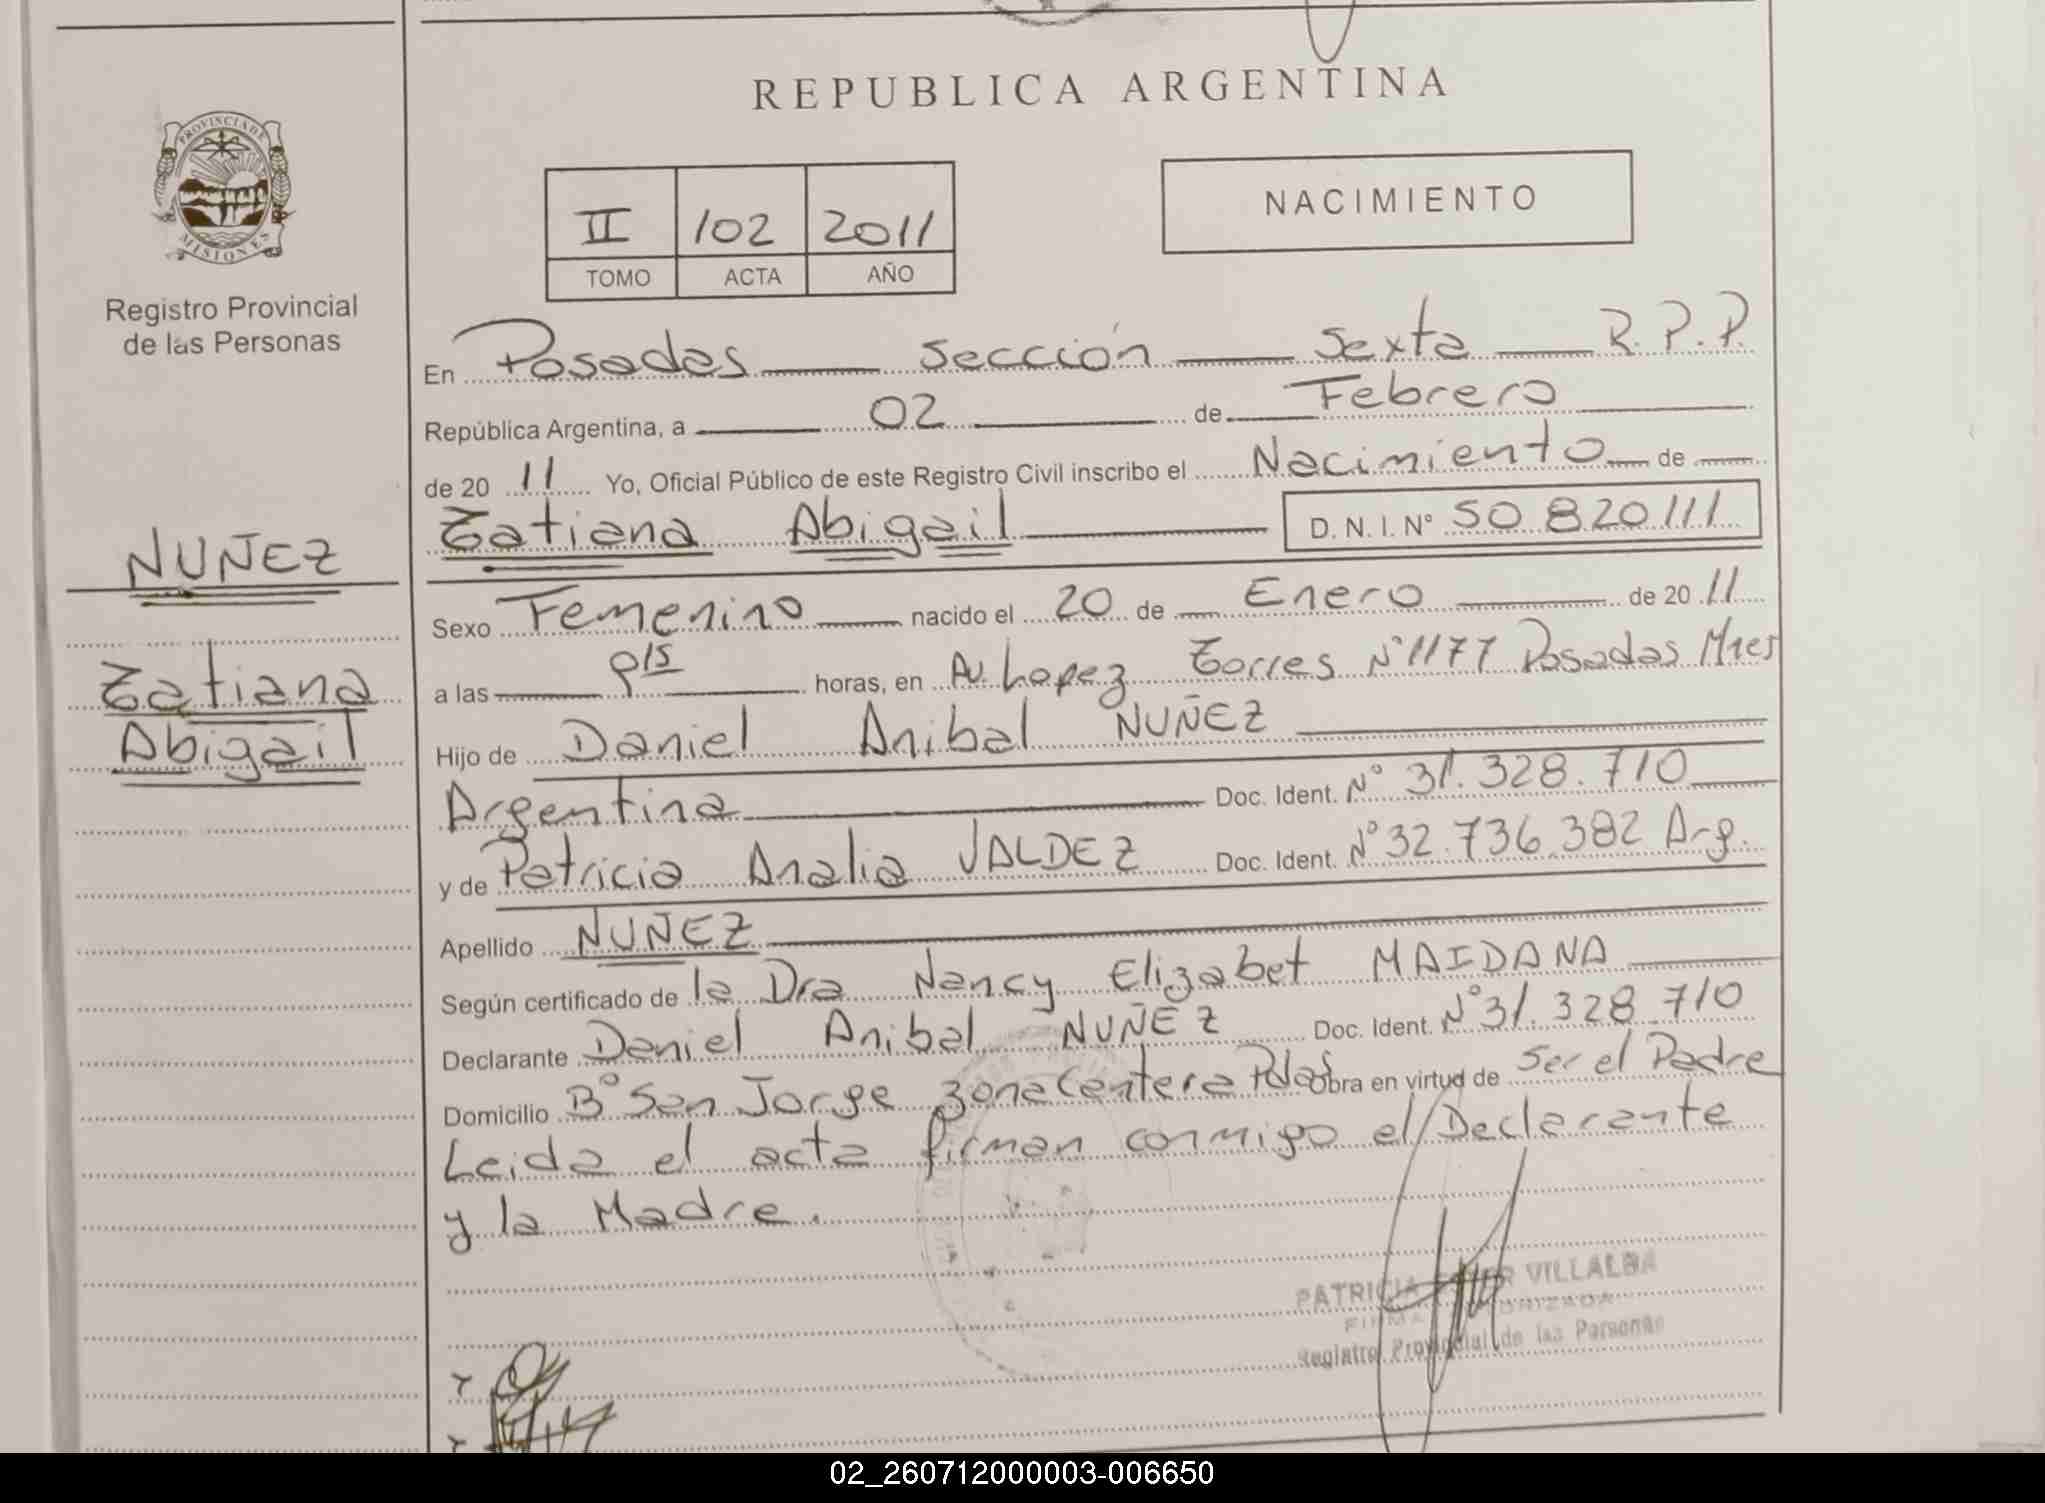 REPUBLICA ARGENTINA
PROVINCIA DE
MISIONES
Registro Provincial
de las Personas
II 102 2011
TOMO ACTA AÑO
NACIMIENTO
En Posadas sección sexta R.P.P.
República Argentina, a 02 de Febrero
de 2011 Yo, Oficial Público de este Registro Civil inscribo el Nacimiento de
Tatiana Abigail D.N.I. Nº 50 820111
NUÑEZ
Tatiana
Abigail
Sexo Femenino nacido el 20 de Enero de 2011
a las horas, en Av. Lopez Torres Nº 1177 Posadas Mnes
Hijo de Daniel Anibal NUÑEZ
Argentina Doc. Ident. Nº 31.328.710
y de Patricia Analia VALDEZ Doc. Ident. Nº 32.736.382 Arg.
Apellido NUÑEZ
Según certificado de la Dra Nancy Elizabet MAIDANA
Declarante Daniel Anibal NUÑEZ Doc. Ident. Nº 31.328.710
Domicilio Bº San Jorge zona Centera Pdas Obra en virtud de Ser el Padre
Leida el acta firman conmigo el Declarante
y la Madre.
PATRICIA VILLALBA
Registro Provincial de las Personas
02_260712000003-006650